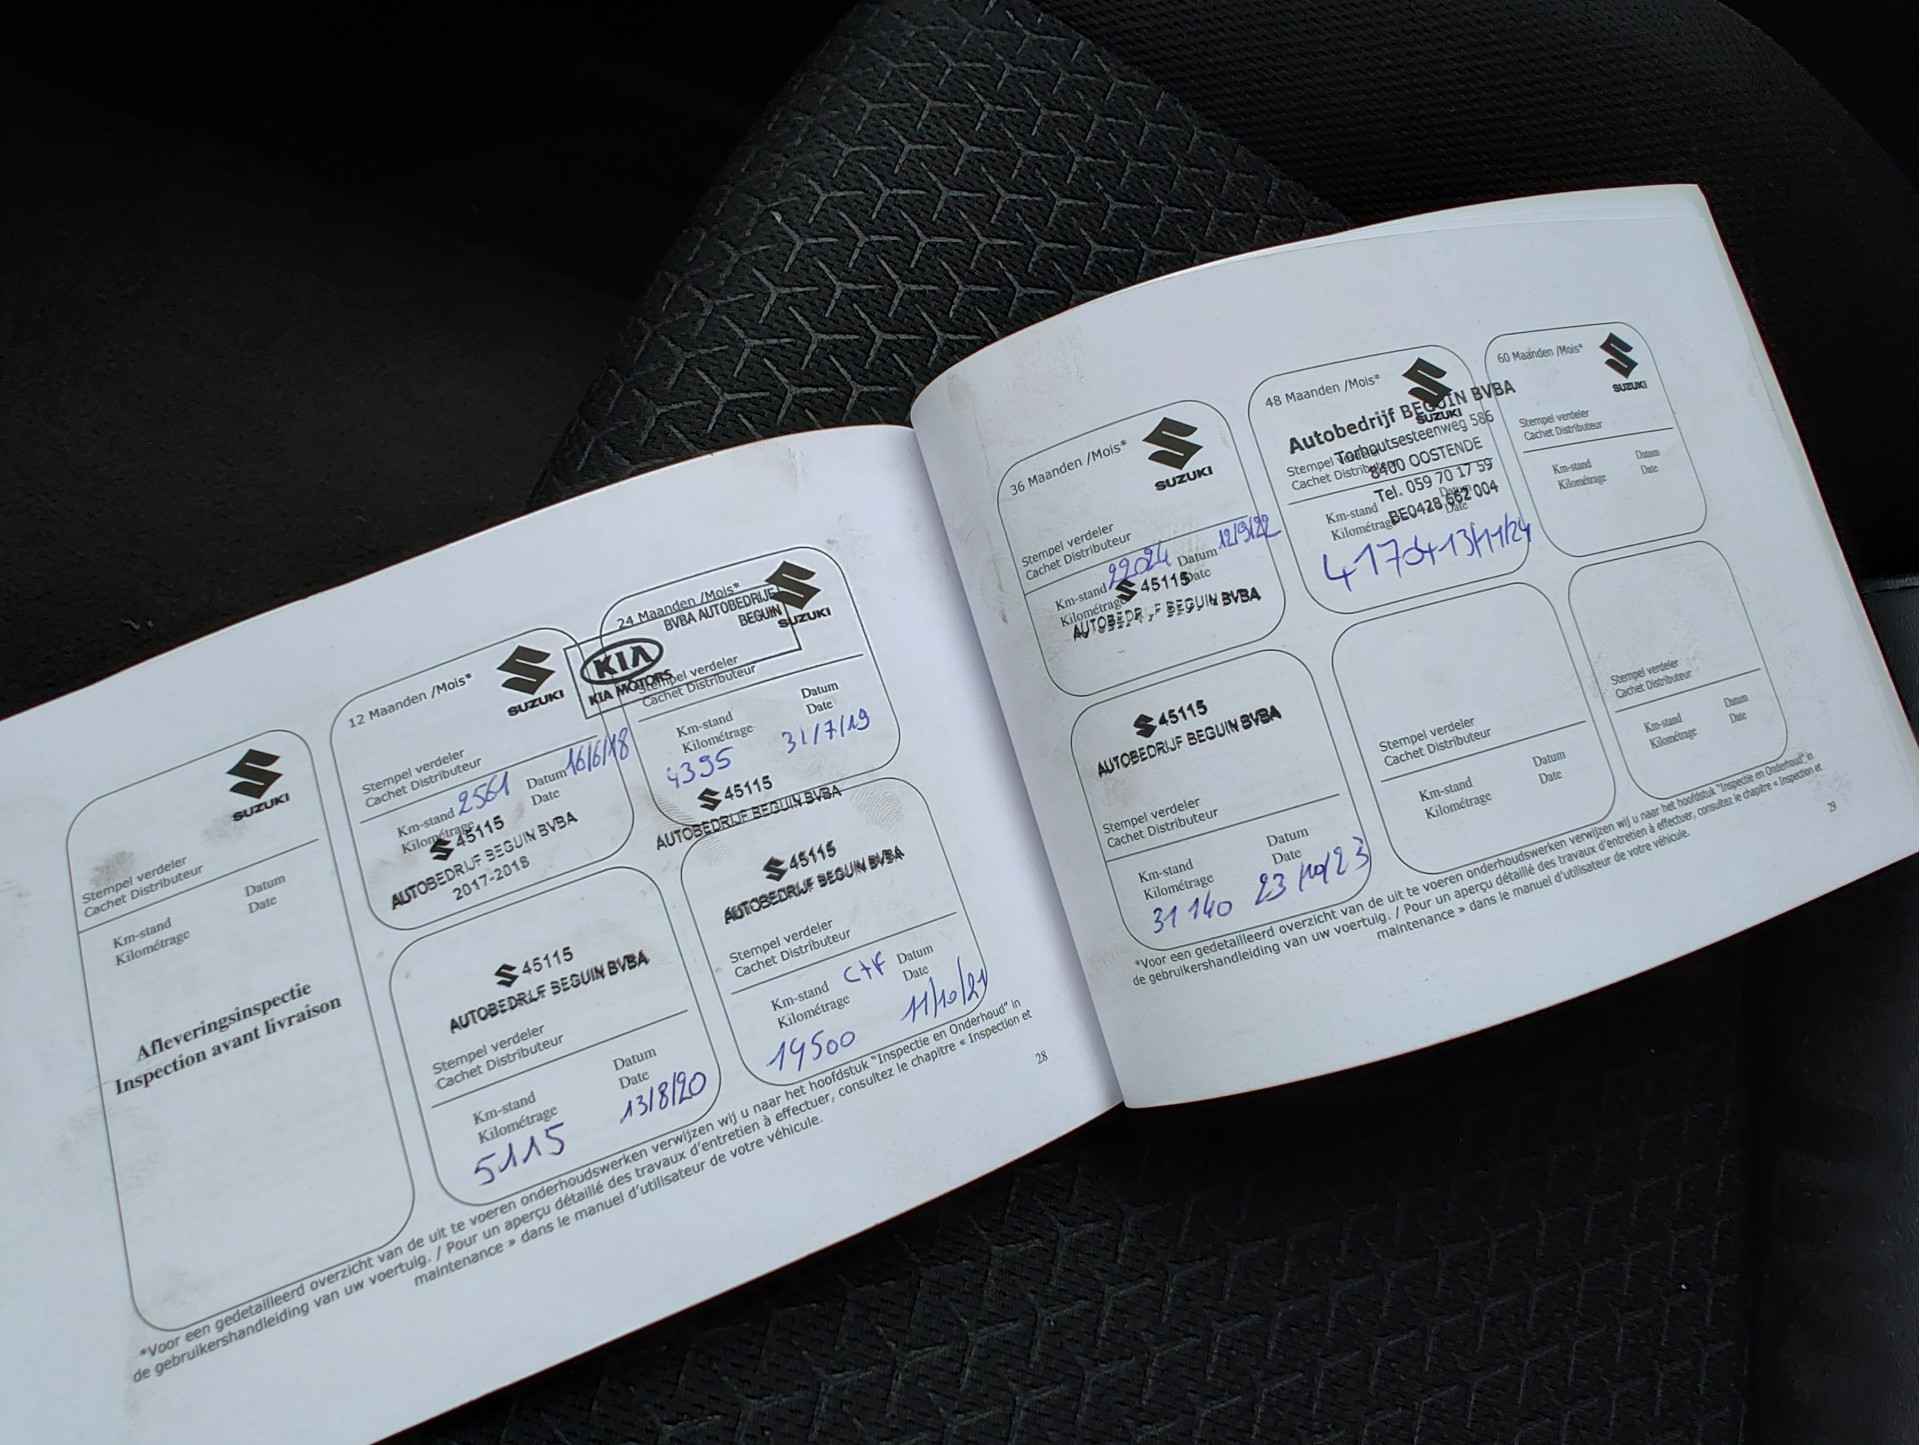 SUZUKI
Stempel verdeler
Cachet Distributeur
Km-stand Datum
Kilométrage Date
Afleveringsinspectie
Inspection avant livraison
12 Maanden /Mois*
SUZUKI
Stempel verdeler
Cachet Distributeur
Km-stand 2561 Datum 16/6/18
Kilométrage Date
45115
AUTOBEDRIJF BEGUIN BVBA
2017-2018
24 Maanden /Mois*
BVBA AUTOBEDRIJF
BEGUIN
SUZUKI
KIA
KIA MOTORS
Stempel verdeler
Cachet Distributeur
Km-stand Datum
Kilométrage Date
4395 31/7/19
45115
AUTOBEDRIJF BEGUIN BVBA
45115
AUTOBEDRIJF BEGUIN BVBA
Stempel verdeler
Cachet Distributeur
Km-stand Datum
Kilométrage Date
5115 13/8/20
45115
AUTOBEDRIJF BEGUIN BVBA
Stempel verdeler
Cachet Distributeur
Km-stand Datum
Kilométrage Date
11/10/21
*Voor een gedetailleerd overzicht van de uit te voeren onderhoudswerken verwijzen wij u naar het hoofdstuk "Inspectie en Onderhoud" in
de gebruikershandleiding van uw voertuig. / Pour un aperçu détaillé des travaux d'entretien à effectuer, consultez le chapitre « Inspection et
maintenance » dans le manuel d'utilisateur de votre véhicule.
28
36 Maanden /Mois*
SUZUKI
Stempel verdeler
Cachet Distributeur
Km-stand 22024 Datum 12/9/22
Kilométrage Date
45115
AUTOBEDRIJF BEGUIN BVBA
48 Maanden /Mois*
SUZUKI
Autobedrijf BEGUIN BVBA
Torhoutsesteenweg 586
8400 OOSTENDE
Tel. 059 70 17 59
BE0428 662 004
Stempel verdeler
Cachet Distributeur
Km-stand Datum
Kilométrage Date
13/11/24
60 Maanden /Mois*
SUZUKI
Stempel verdeler
Cachet Distributeur
Km-stand Datum
Kilométrage Date
45115
AUTOBEDRIJF BEGUIN BVBA
Stempel verdeler
Cachet Distributeur
Km-stand Datum
Kilométrage Date
31140 23/10/23
Stempel verdeler
Cachet Distributeur
Km-stand Datum
Kilométrage Date
Stempel verdeler
Cachet Distributeur
Km-stand Datum
Kilométrage Date
*Voor een gedetailleerd overzicht van de uit te voeren onderhoudswerken verwijzen wij u naar het hoofdstuk "Inspectie en Onderhoud" in
de gebruikershandleiding van uw voertuig. / Pour un aperçu détaillé des travaux d'entretien à effectuer, consultez le chapitre « Inspection et
maintenance » dans le manuel d'utilisateur de votre véhicule.
29